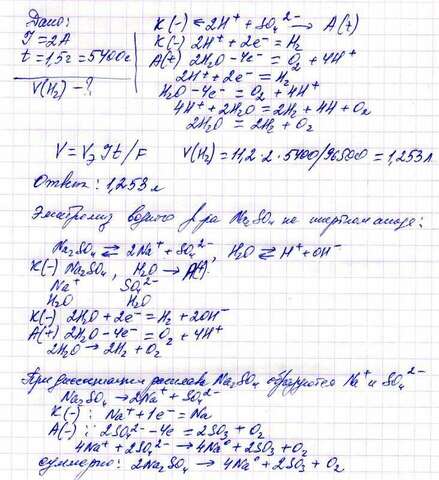 Дано:
J = 2A
t = 1,5г = 5400с
V(H₂) - ?
K(-) ← 2H⁺ + SO₄²⁻ → A(+)
K(-) 2H⁺ + 2e⁻ = H₂
A(+) 2H₂O - 4e⁻ = O₂ + 4H⁺
2H⁺ + 2e⁻ = H₂
H₂O - 4e⁻ = O₂ + 4H⁺
4H⁺ + 2H₂O = 2H₂ + 4H + O₂
2H₂O = 2H₂ + O₂
V = Vэ Jt / F V(H₂) = 11,2 · 2 · 5400/96500 = 1,253 л
Ответ: 1,253 л
Электролиз водного р-ра Na₂SO₄ на инертном аноде:
Na₂SO₄ ⇄ 2Na⁺ + SO₄²⁻, H₂O ⇄ H⁺ + OH⁻
K(-) Na₂SO₄, H₂O → A(+)
Na⁺ SO₄²⁻
H₂O H₂O
K(-) 2H₂O + 2e⁻ = H₂ + 2OH⁻
A(+) 2H₂O - 4e⁻ = O₂ + 4H⁺
2H₂O → 2H₂ + O₂
При диссоциации расплава Na₂SO₄ образуются Na⁺ и SO₄²⁻
Na₂SO₄ → 2Na⁺ + SO₄²⁻
K(-): Na⁺ + 1e⁻ = Na
A(-): 2SO₄²⁻ - 4e = 2SO₃ + O₂
4Na⁺ + 2SO₄²⁻ → 4Na⁰ + 2SO₃ + O₂
суммарно: 2Na₂SO₄ → 4Na⁰ + 2SO₃ + O₂